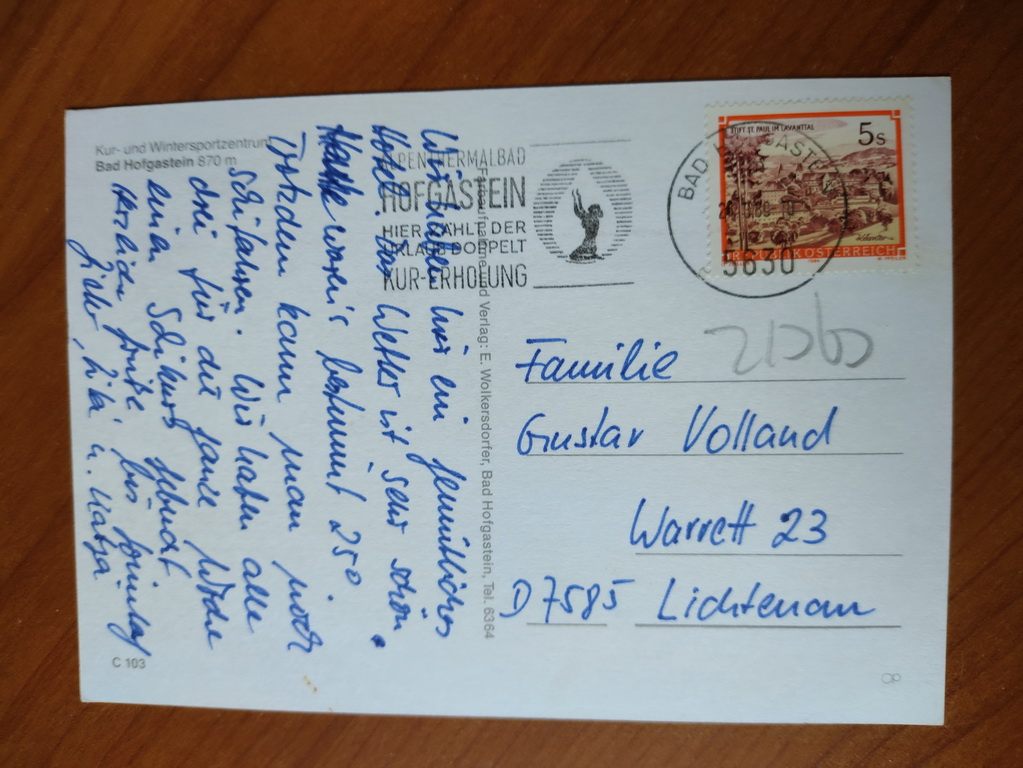 Kur- und Wintersportzentrum
Bad Hofgastein 870 m
Wir haben hier ein gemütliches
Hotel. Das Wetter ist sehr schön.
Heute waren's bestimmt 25°.
Trotzdem kann man noch
schifahren. Wir haben alle
drei für die ganze Woche
einen Schikurs gebucht
Herzliche Grüße bis Sonntag
u. Katja
C 103
Farbaufnahme und Verlag: E. Wolkersdorfer, Bad Hofgastein, Tel. 6364
ALPENTHERMALBAD
HOFGASTEIN
HIER ZÄHLT DER
URLAUB DOPPELT
KUR-ERHOLUNG
BAD HOFGASTEIN
5630
STIFT ST. PAUL IM LAVANTTAL
5 S
REPUBLIK ÖSTERREICH
Familie
Gustav Volland
Warrett 23
D 7585 Lichtenau